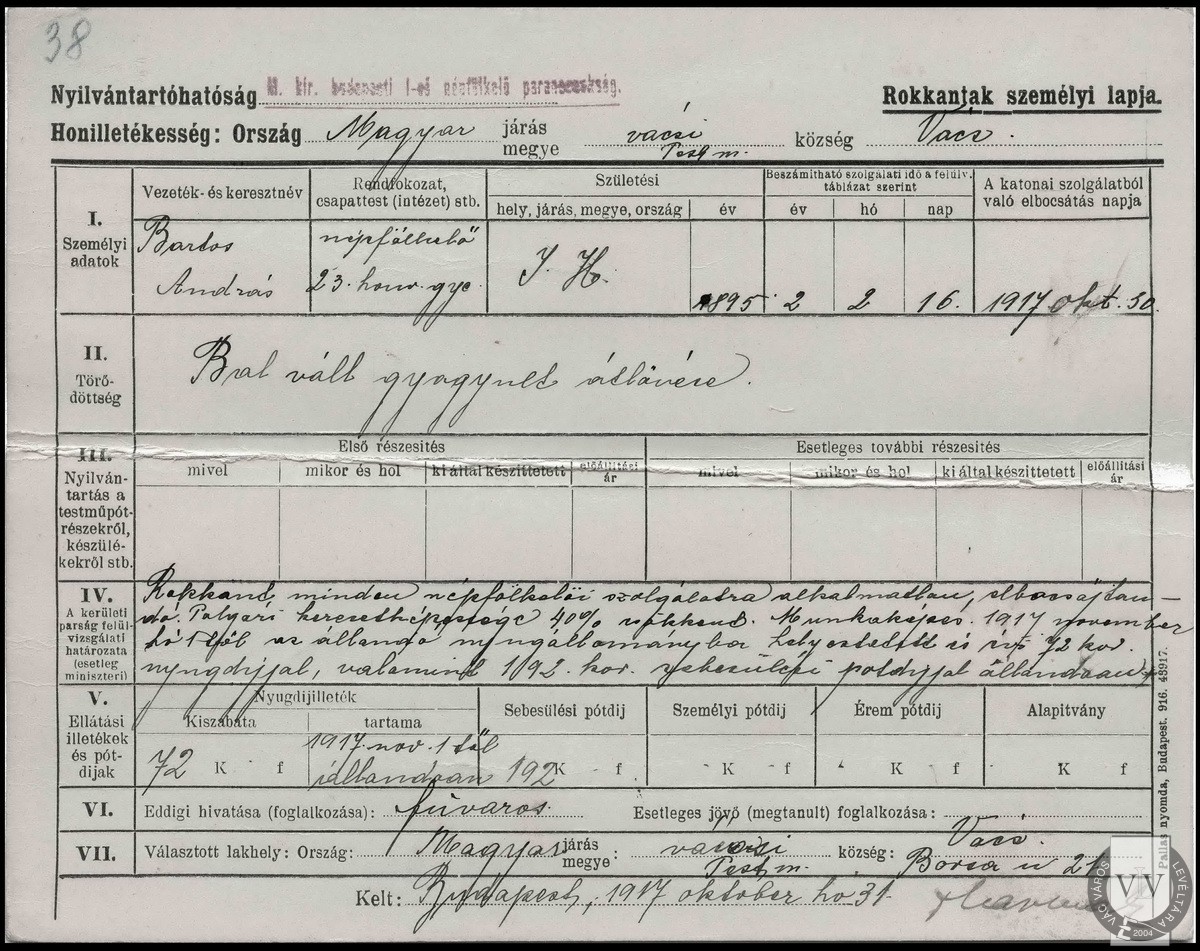 38
Nyilvántartóhatóság M. kir. budapesti I-ső népfölkelő parancsnokság.
Rokkantak személyi lapja.
Honilletékesség: Ország Magyar járás megye vácsi Pest m. község Vács.
I. Személyi adatok
Vezeték- és keresztnév
Rendfokozat, csapattest (intézet) stb.
Születési
hely, járás, megye, ország
év
Beszámítható szolgálati idő a felülv. táblázat szerint
év hó nap
A katonai szolgálatból való elbocsátás napja
Bartos népfölkelő
András 23. honv. gye. I. H. 1895 2 2 16. 1917 okt. 30.
II. Törődöttség
Bal váll gyogyult átlövése.
III. Nyilvántartás a testműpótrészekről, készülékekről stb.
Első részesités
Esetleges további részesités
mivel mikor és hol ki által készittetett előállitási ár
mivel mikor és hol ki által készittetett előállitási ár
IV. A kerületi parság felülvizsgálati határozata (esetleg miniszteri)
Rokkant minden népfölkelői szolgálatra alkalmatlan, elbocsájtan-
dó. Polgári keresetképessége 40% csökkent. Munkaképes. 1917 november
hó 1től az állandó nyugállományba helyeztetett és évi 72 kor.
nyugdijjal, valamint 192 kor. sebesülési pótdijjal állandóan
V. Ellátási illetékek és pótdijak
Nyugdijilleték
Kiszabata tartama
Sebesülési pótdij Személyi pótdij Érem pótdij Alapitvány
1917. nov. 1től
72 K f állandóan 192 K f K f K f K f
VI. Eddigi hivatása (foglalkozása): fuvaros. Esetleges jövő (megtanult) foglalkozása:
VII. Választott lakhely: Ország: Magyar járás megye: vácsi Pest m. község: Vács. Borsa u 21
Kelt: Budapest, 1917 október hó 31.
Pallas nyomda, Budapest. 916. 43917.
VÁC VÁROS LEVÉLTÁRA
VV
2004